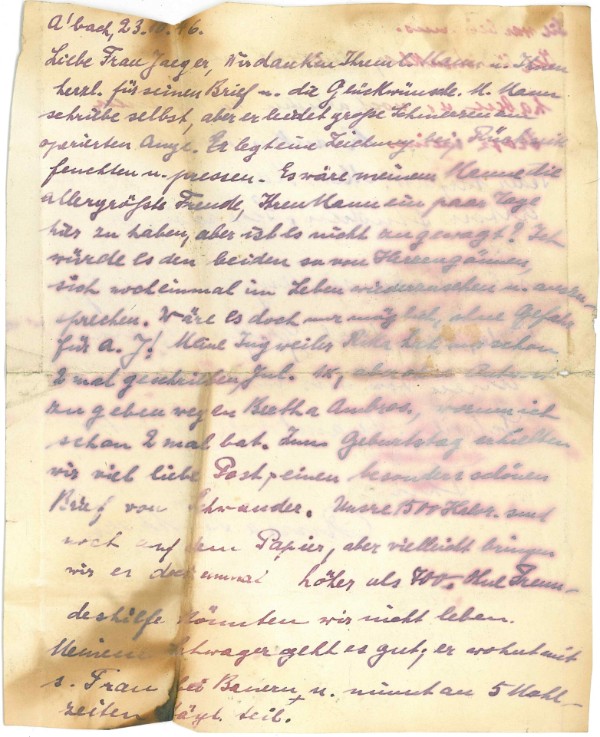 A'bach, 23.10.46.
Liebe Frau Jaeger, Wir danken Ihrem l. Mann u. Ihnen
herzl. für seinen Brief u. die Glückwünsche. M. Mann
schriebe selbst, aber er leidet große Schmerzen am
operierten Auge. Er legt eine Zeichnung bei,
feuchten u. pressen. Es wäre meinem Manne die
allergrößte Freude, Ihren Mann ein paar Tage
hier zu haben, aber ist es nicht zu gewagt? Ich
würde es den beiden so von Herzen gönnen,
sich noch einmal im Leben wiederzusehen u. auszu-
sprechen. Wäre es doch nur möglich, ohne Gefahr
für a. J! Meine Ingweiler hat uns schon
2 mal geschrieben, Jul. aber ohne Antwort
zu geben wegen Bertha Ambros, worum ich
schon 2 mal bat. Zum Geburtstag erhielten
wir viel liebe Post, einen besonders schönen
Brief von Schwander. Unsre 1500 sind
noch auf dem Papier, aber vielleicht bringen
wir es doch einmal höher als 700. Freun-
deshilfe könnten wir nicht leben.
Meinem Schwager geht es gut; er wohnt mit
s. Frau bei Bauern u. nimmt an 5 Mahl-
zeiten tägl. teil.